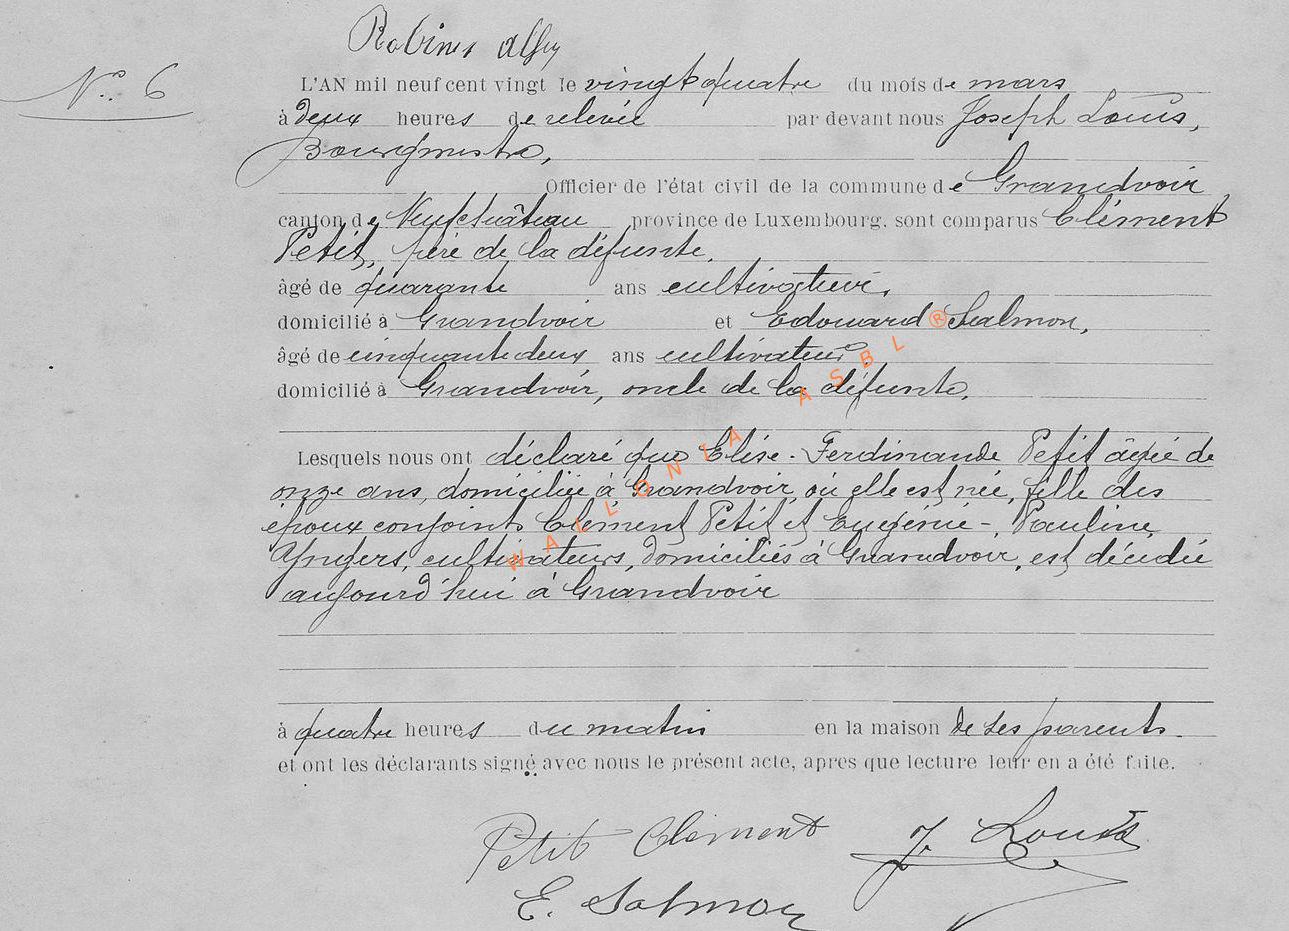 Robines Alfy
N° 6
L'AN mil neuf cent vingt le vingt quatre du mois de mars
à deux heures de relevée par devant nous Joseph Louis,
Bourgmestre,
Officier de l'état civil de la commune de Grandvoir
canton de Neufchâteau province de Luxembourg, sont comparus Clément
Petit, père de la défunte,
âgé de quarante ans cultivateur,
domicilié à Grandvoir et Edouard Salmon,
âgé de cinquante deux ans cultivateur,
domicilié à Grandvoir, oncle de la défunte,
Lesquels nous ont déclaré que Elise-Ferdinande Petit âgée de
onze ans, domiciliée à Grandvoir, où elle est née, fille des
époux conjoints Clément Petit et Eugénie-Pauline
, cultivateurs, domiciliés à Grandvoir, est décédée
aujourd'hui à Grandvoir
à quatre heures du matin en la maison de ses parents.
et ont les déclarants signé avec nous le présent acte, apres que lecture leur en a été faite.
Petit Clément J. Louis
E. Salmon
WALLONIA ASBL ®